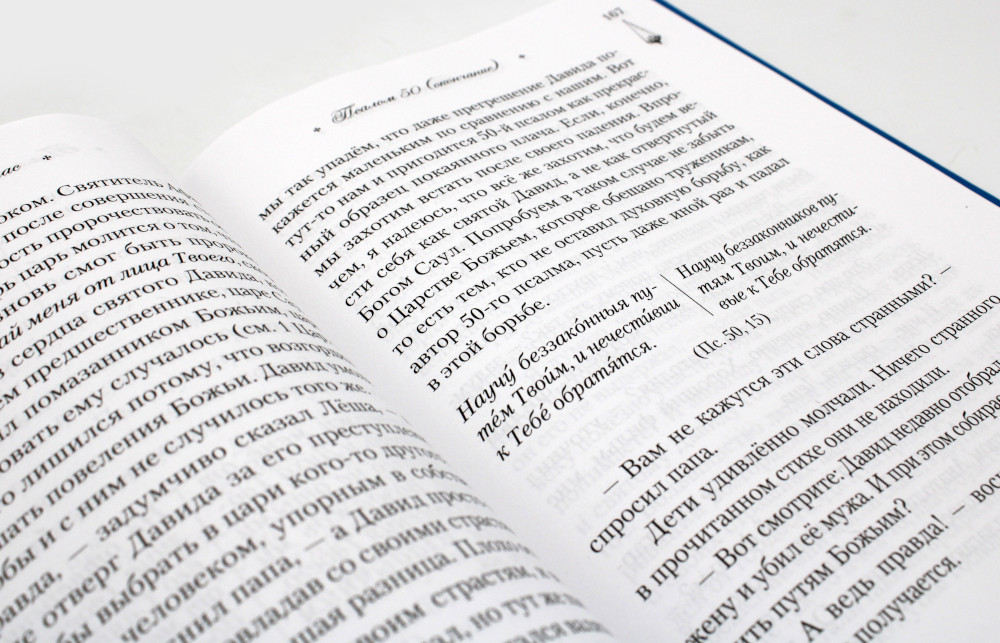 ок. Святитель
после совершения
ость пророчествовать
царь молится о том
вновь смог быть
ай меня от лица Твоего
сердца святого Давида
предшественнике, царе
л помазанником Божьим,
овать ему случалось (см. 1
о лишился потому, что возгор
шать повеления Божьи. Давид
обы и с ним не случилось того же.
— задумчиво сказал Лёша, —
е отверг Давида за его преступле
бы выбрать в цари кого-то другого
человеком, упорным в
нил папа, — а Давид прост
овладав со своими страст
шая разница. Плохо
оим страстям,
ал, но тут же
167
Псалом 50 (окончание)
мы так упадём, что даже прегрешение Давида по-
кажется маленьким по сравнению с нашим. Вот
тут-то нам и пригодится 50-й псалом как прекрас-
ный образец покаянного плача. Если, конечно,
мы захотим встать после своего падения. Впро-
чем, я надеюсь, что всё же захотим, что будем ве-
сти себя как святой Давид, а не как отвергнутый
Богом Саул. Попробуем в таком случае не забыть
о Царстве Божьем, которое обещано труженикам,
то есть тем, кто не оставил духовную борьбу, как
автор 50-го псалма, пусть даже иной раз и падал
в этой борьбе.
Научу́ беззако́нныя пу-
те́м Твои́м, и нечести́вии
к Тебе́ обратя́тся.
Научу беззаконников пу-
тям Твоим, и нечести-
вые к Тебе обратятся.
(Пс. 50, 15)
— Вам не кажутся эти слова странными? —
спросил папа.
Дети удивлённо молчали. Ничего странного
в прочитанном стихе они не находили.
— Вот смотрите: Давид недавно отобрал
жену и убил её мужа. И при этом собирае
ить путям Божьим?
А ведь правда! — вос
получается.